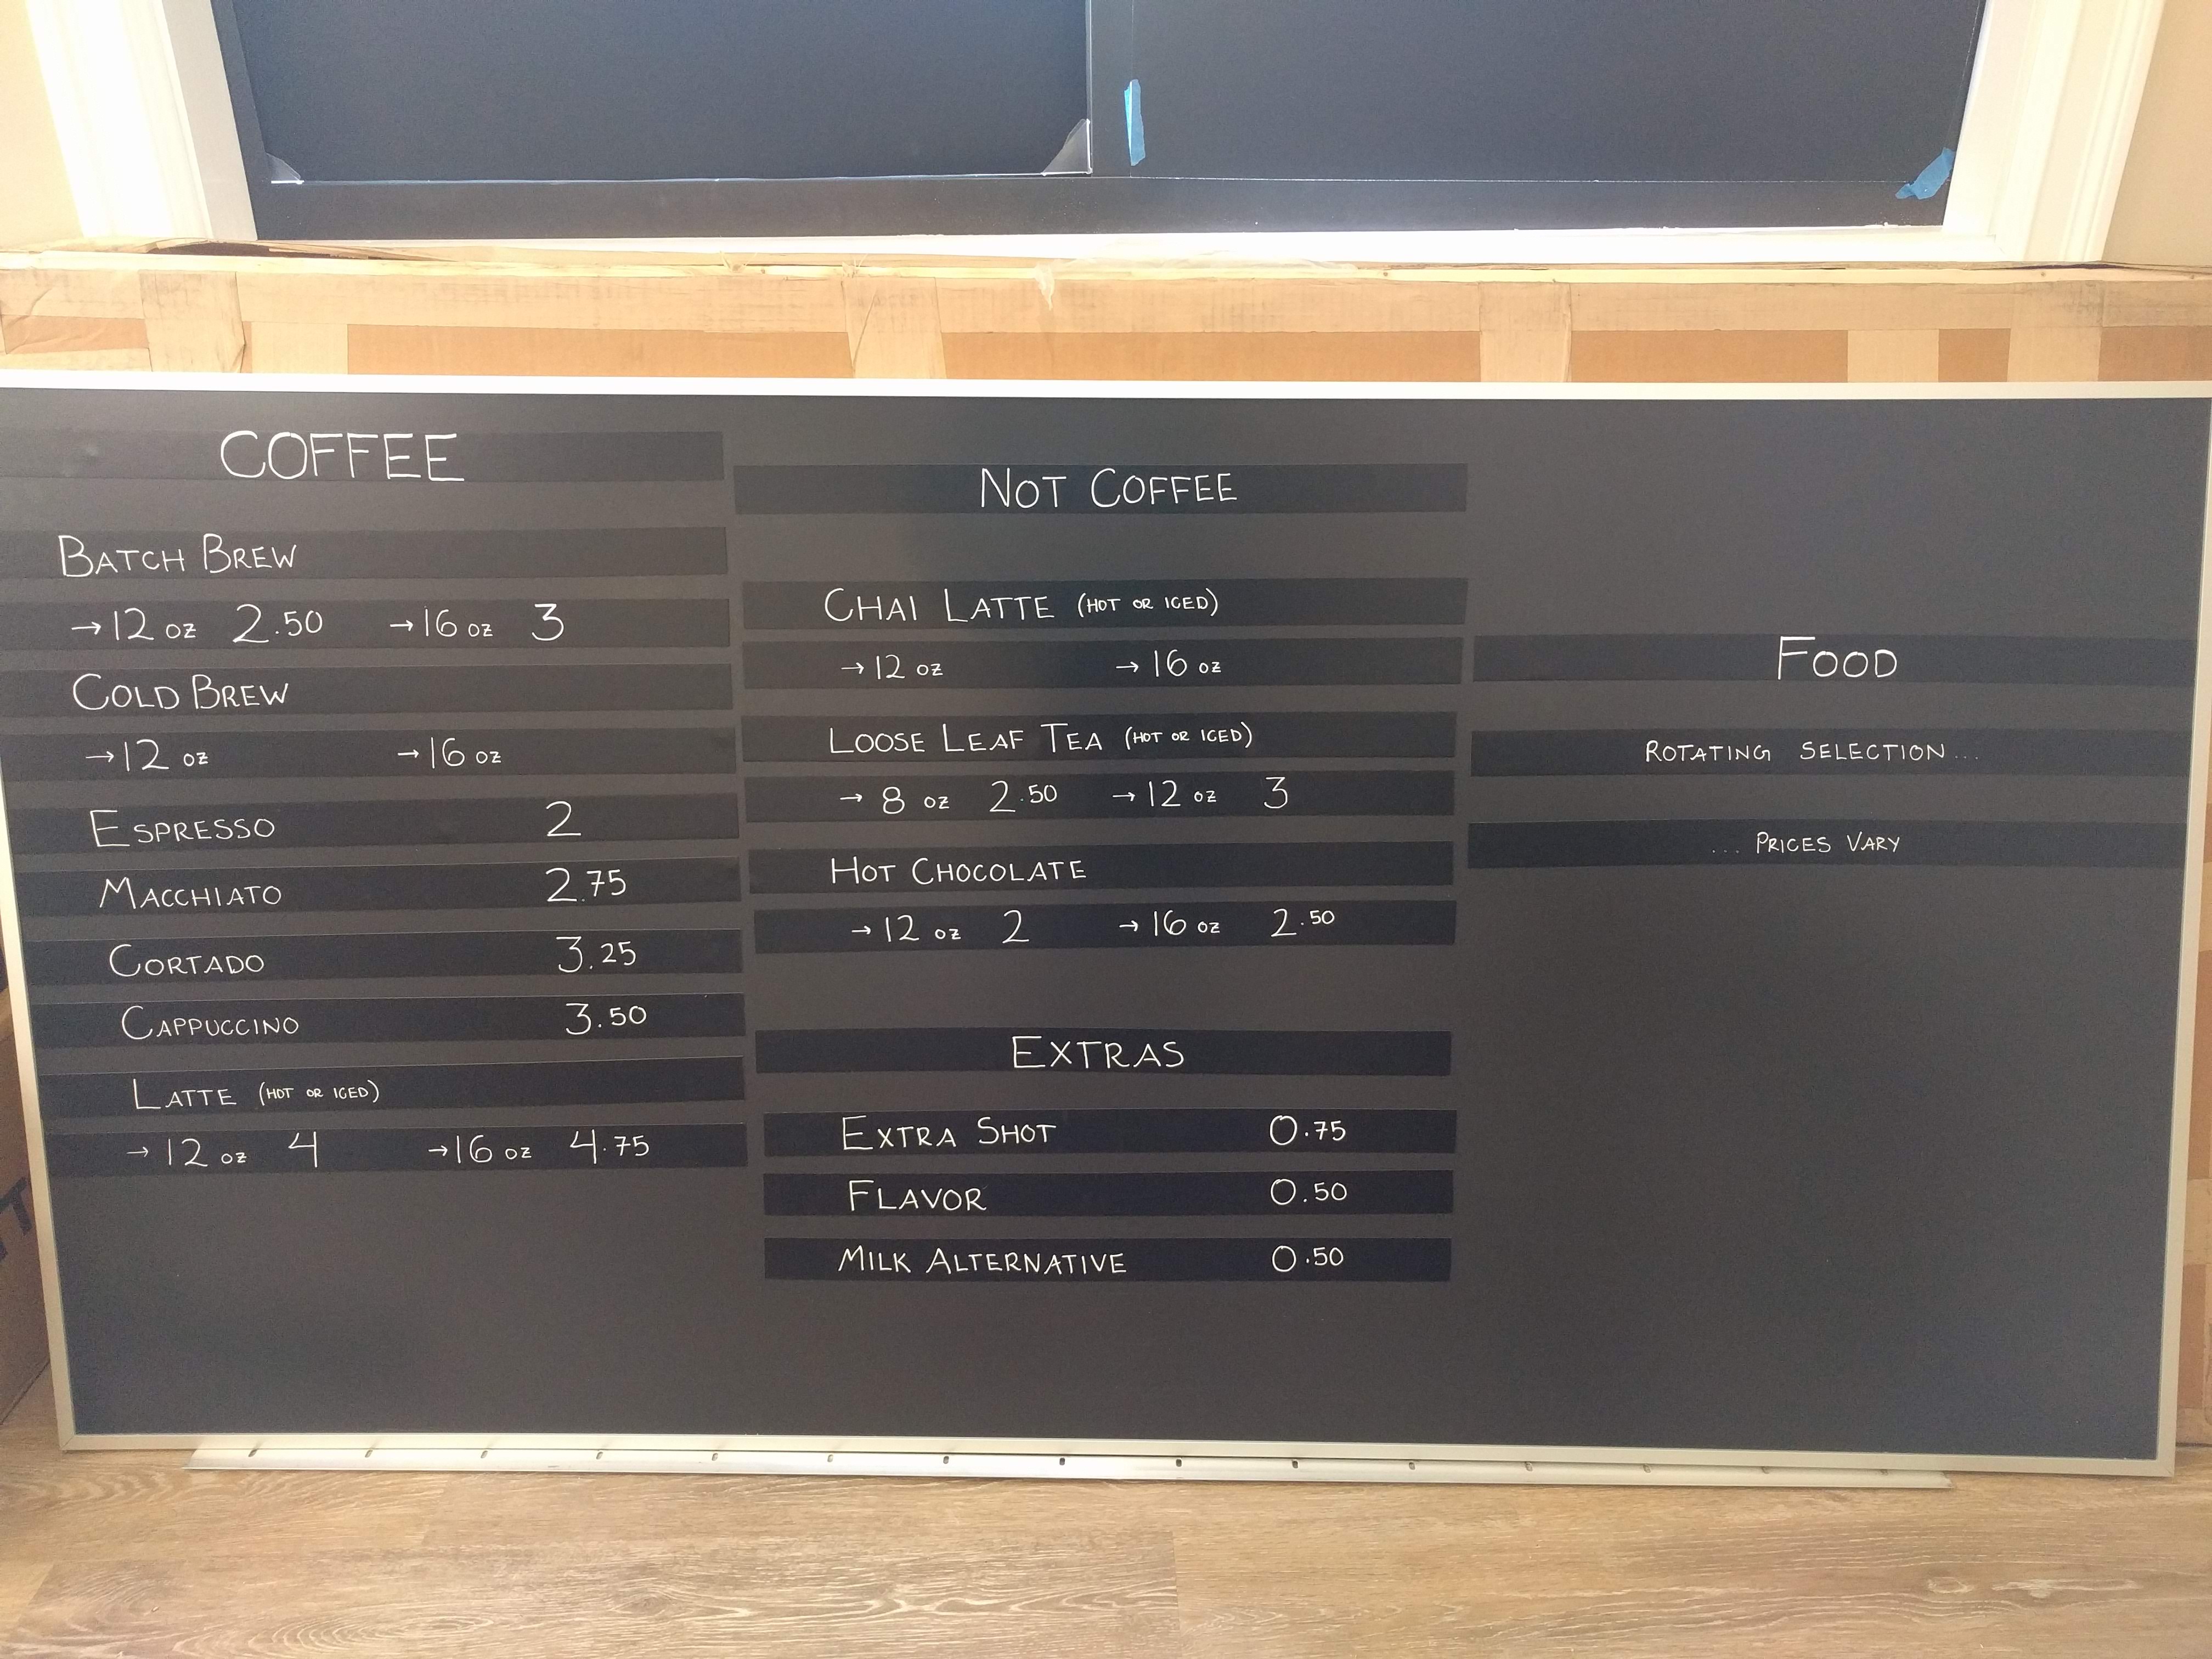 COFFEE
BATCH BREW
→12 oz 2.50 →16 oz 3
COLD BREW
→12 oz →16 oz
ESPRESSO 2
MACCHIATO 2.75
CORTADO 3.25
CAPPUCCINO 3.50
LATTE (HOT OR ICED)
→12 oz 4 →16 oz 4.75
NOT COFFEE
CHAI LATTE (HOT OR ICED)
→12 oz →16 oz
LOOSE LEAF TEA (HOT OR ICED)
→8 oz 2.50 →12 oz 3
HOT CHOCOLATE
→12 oz 2 →16 oz 2.50
EXTRAS
EXTRA SHOT 0.75
FLAVOR 0.50
MILK ALTERNATIVE 0.50
FOOD
ROTATING SELECTION...
... PRICES VARY